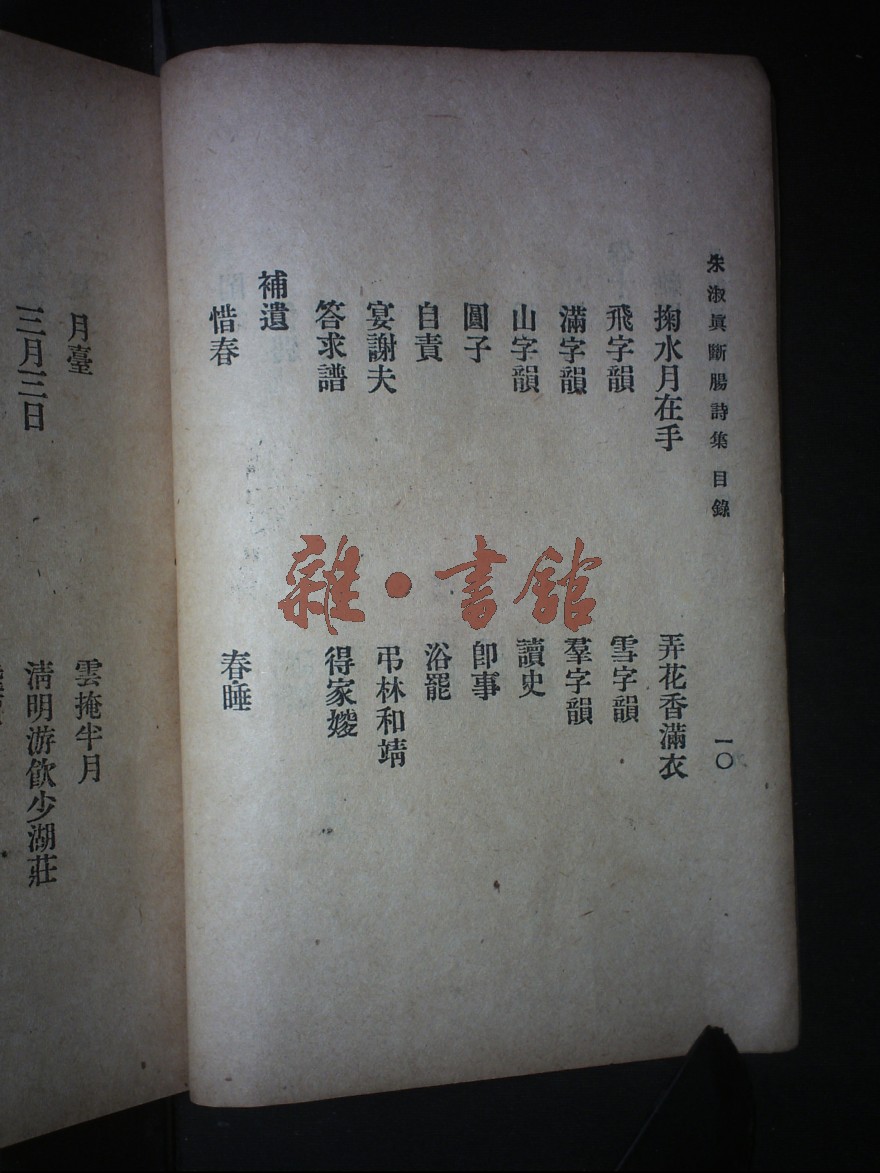 朱淑眞斷腸詩集 目錄 一〇
掬水月在手 弄花香滿衣
飛字韻 雪字韻
滿字韻 羣字韻
山字韻 讀史
圓子 卽事
自責 浴罷
宴謝夫 弔林和靖
答求譜 得家嫂
補遺
惜春 春睡
月臺 雲掩半月
三月三日 淸明游飮少湖莊
雜·書館